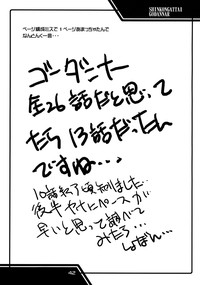 SHINKONGATTAI
GODANNAR
ページ構成ミスで1ページあまっちゃったんで
なんとんく一言・・・
ゴーダンナー
全26話だと思って
たら13話だったん
ですね…
10話終了頃知りました。
後半ヤケにペースが
早いと思って調べて
みたら…
しょぼん…
42